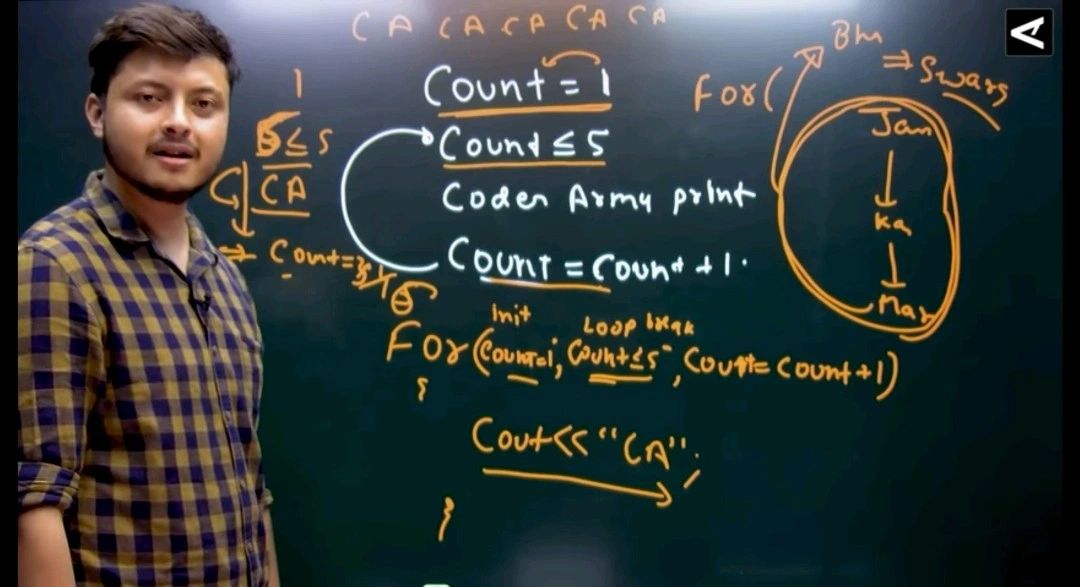 CA CA CA CA CA
Count = 1
Count ≤ 5
Coder Army print
Count = Count + 1.
1
5 ≤ 5
CA
⇒ Count =
6
Init
Loop break
For (Count=1; Count≤5; Count= Count+1)
{
Cout<< "CA";
}
For(
⇒ Swarg
Jan
↓
ka
↓
Mar